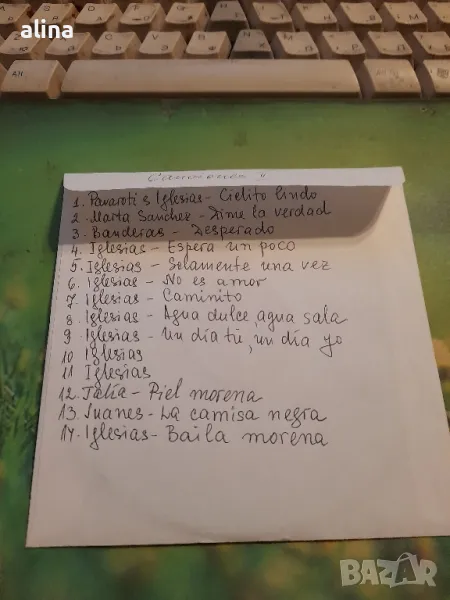 alina
Alt
1. Pavaroti & Iglesias - Cielito lindo
2. Marta Sanchez - Dime la verdad
3. Banderas - Desperado
4. Iglesias - Espera un poco
5. Iglesias - Solamente una vez
6. Iglesias - No es amor
7. Iglesias - Caminito
8. Iglesias - Agua dulce, agua sala
9. Iglesias - Un día tú, un día yo
10 Iglesias
11 Iglesias
12. Talía - Piel morena
13. Juanes - La camisa negra
14. Iglesias - Baila morena
BAZAR.bg